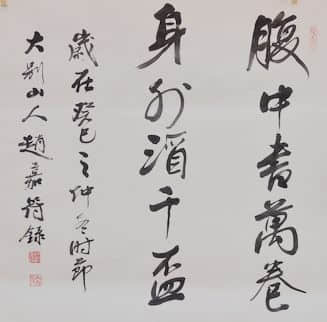 腹中書萬卷
身外酒千盃
歲在癸巳之仲冬时節
大别山人趙嘉錄